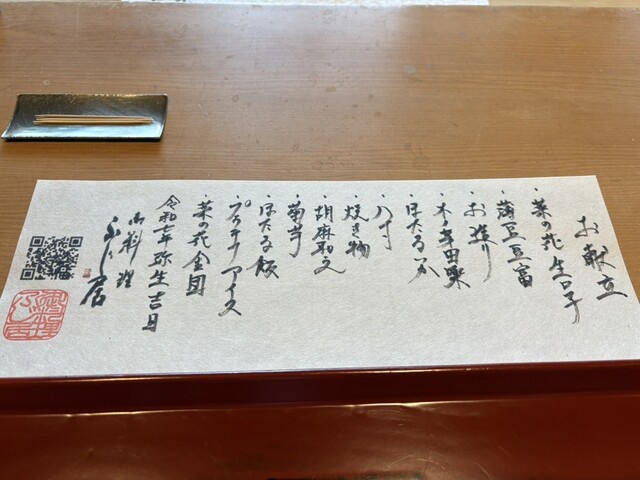 お献立
・菜の花 生口子
・蚕豆豆富
・お造り
・木の芽田楽
・ほたるいか
・八寸
・焼き物
・胡麻和え
・菊芋
・ほたる飯
・プラチナアイス
・菜の花金団
令和七年弥生吉日
御料理
居